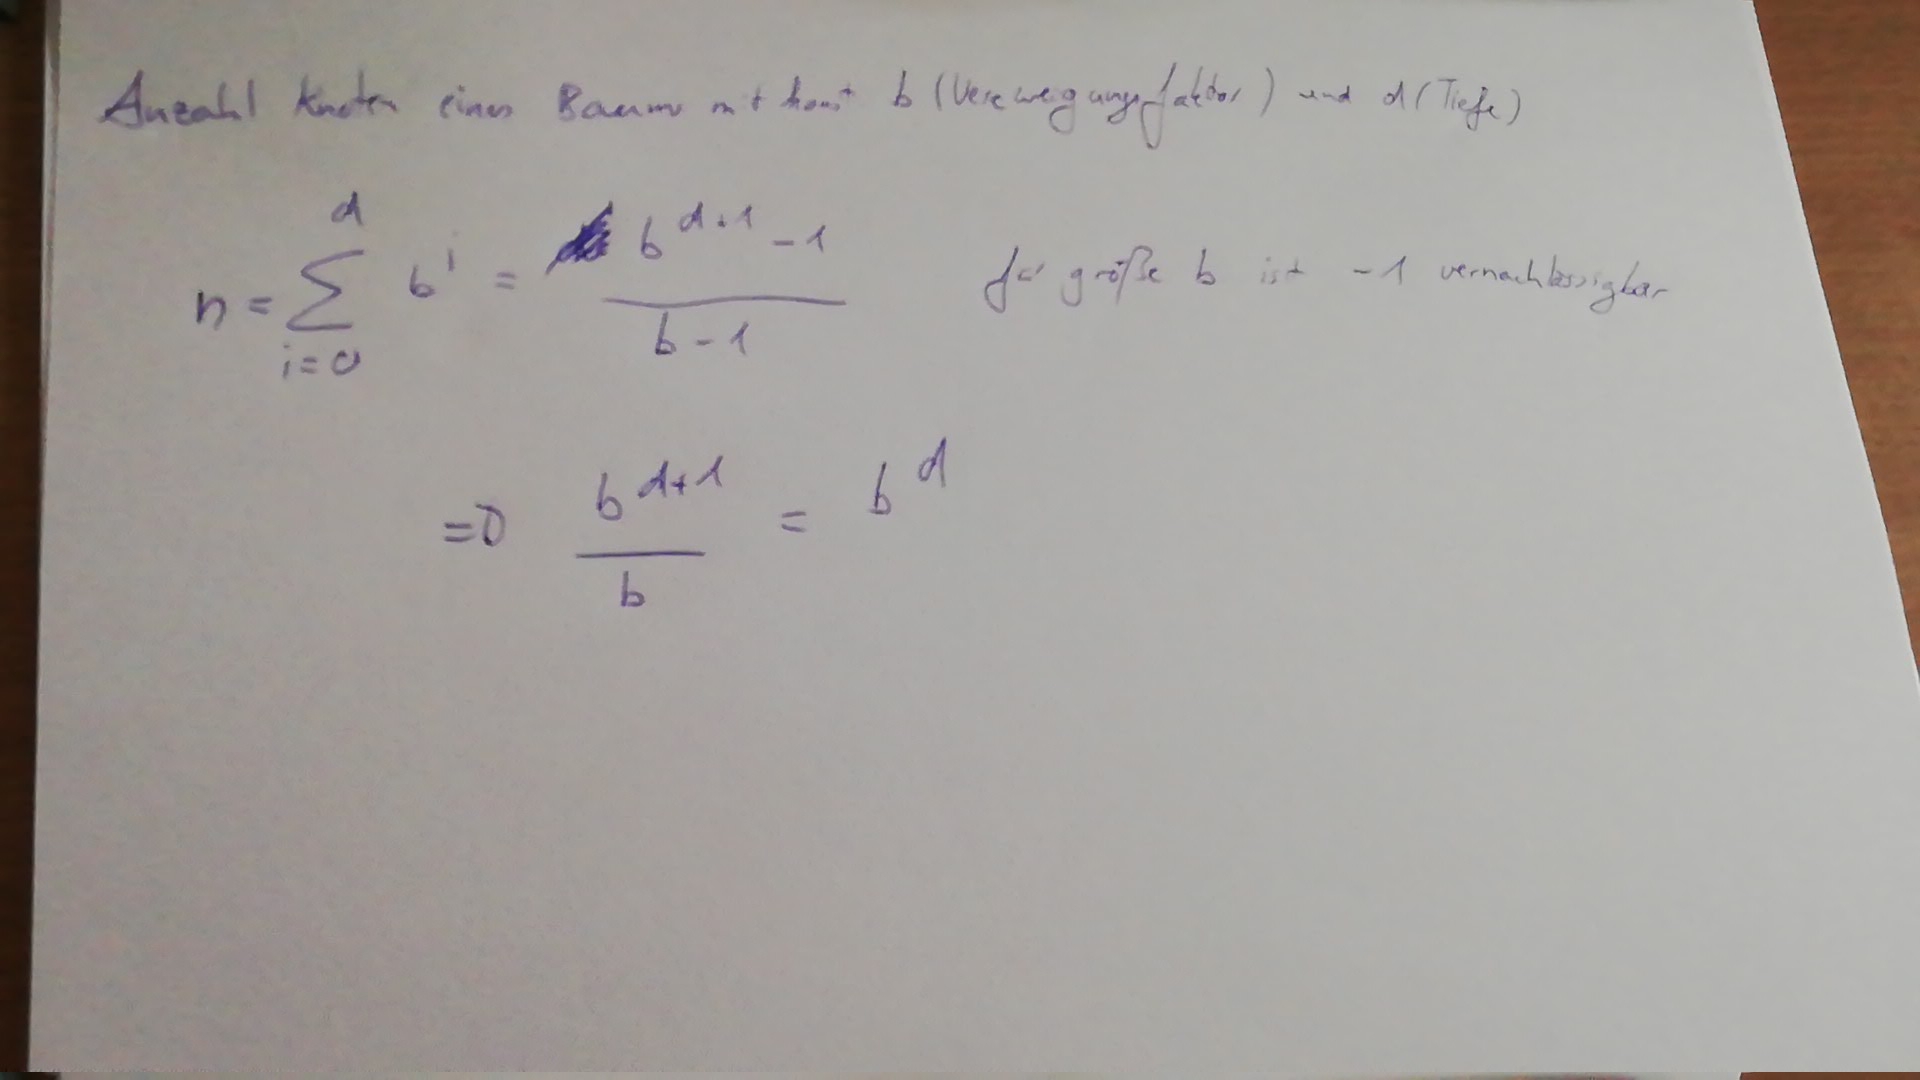 Anzahl Knoten eines Baums mit konst b (Verzweigungsfaktor) und d (Tiefe)
n = \sum_{i=0}^{d} b^i = \frac{b^{d+1} - 1}{b - 1} für größe b ist -1 vernachlässigbar
=> \frac{b^{d+1}}{b} = b^d